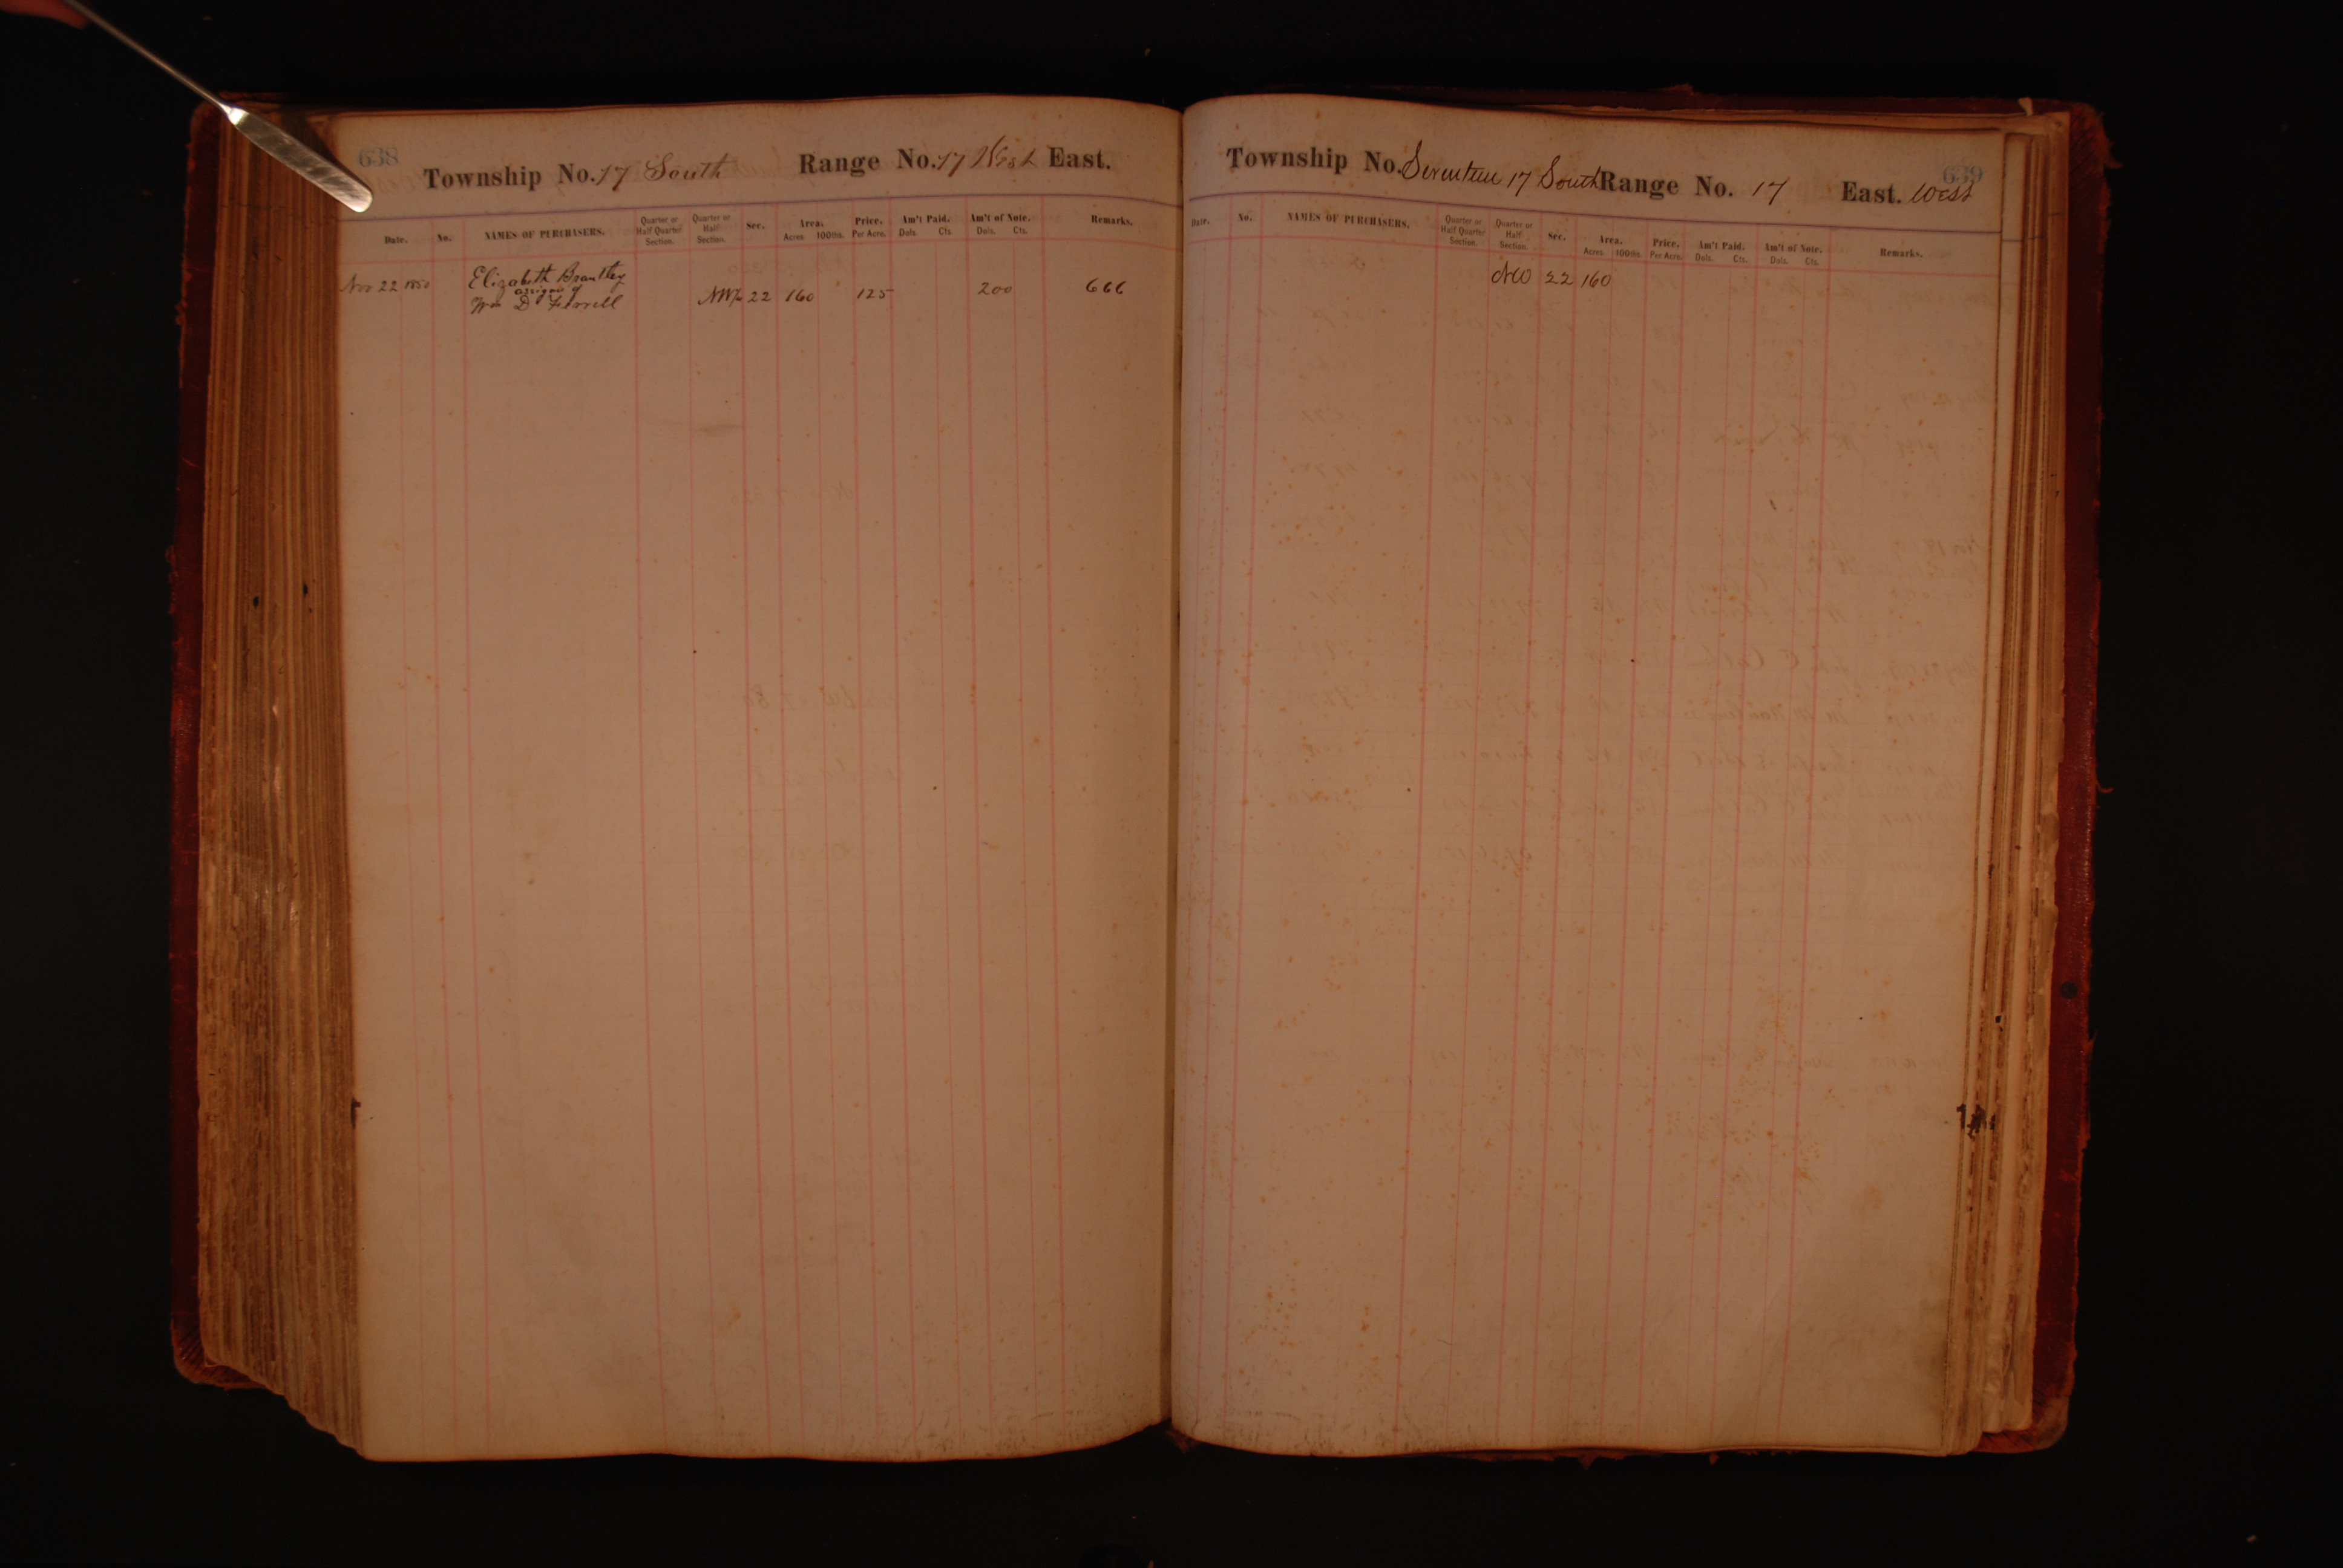 638
Township No. 17 South Range No. 17 West East.
Date. No. NAMES OF PURCHASERS. Quarter or Half Quarter Section. Quarter or Half Section. Sec. Area. Acres 100ths. Price. Per Acre. Am't Paid. Dols. Cts. Am't of Note. Dols. Cts. Remarks.
Nov 22 1850 Elizabeth Brantley
assignee of
Wm D Ferrell NW¼ 22 160 125 200 666
639
Township No. Seventeen 17 South Range No. 17 East. West
Date. No. NAMES OF PURCHASERS. Quarter or Half Quarter Section. Quarter or Half Section. Sec. Area. Acres 100ths. Price. Per Acre. Am't Paid. Dols. Cts. Am't of Note. Dols. Cts. Remarks.
NW 22 160